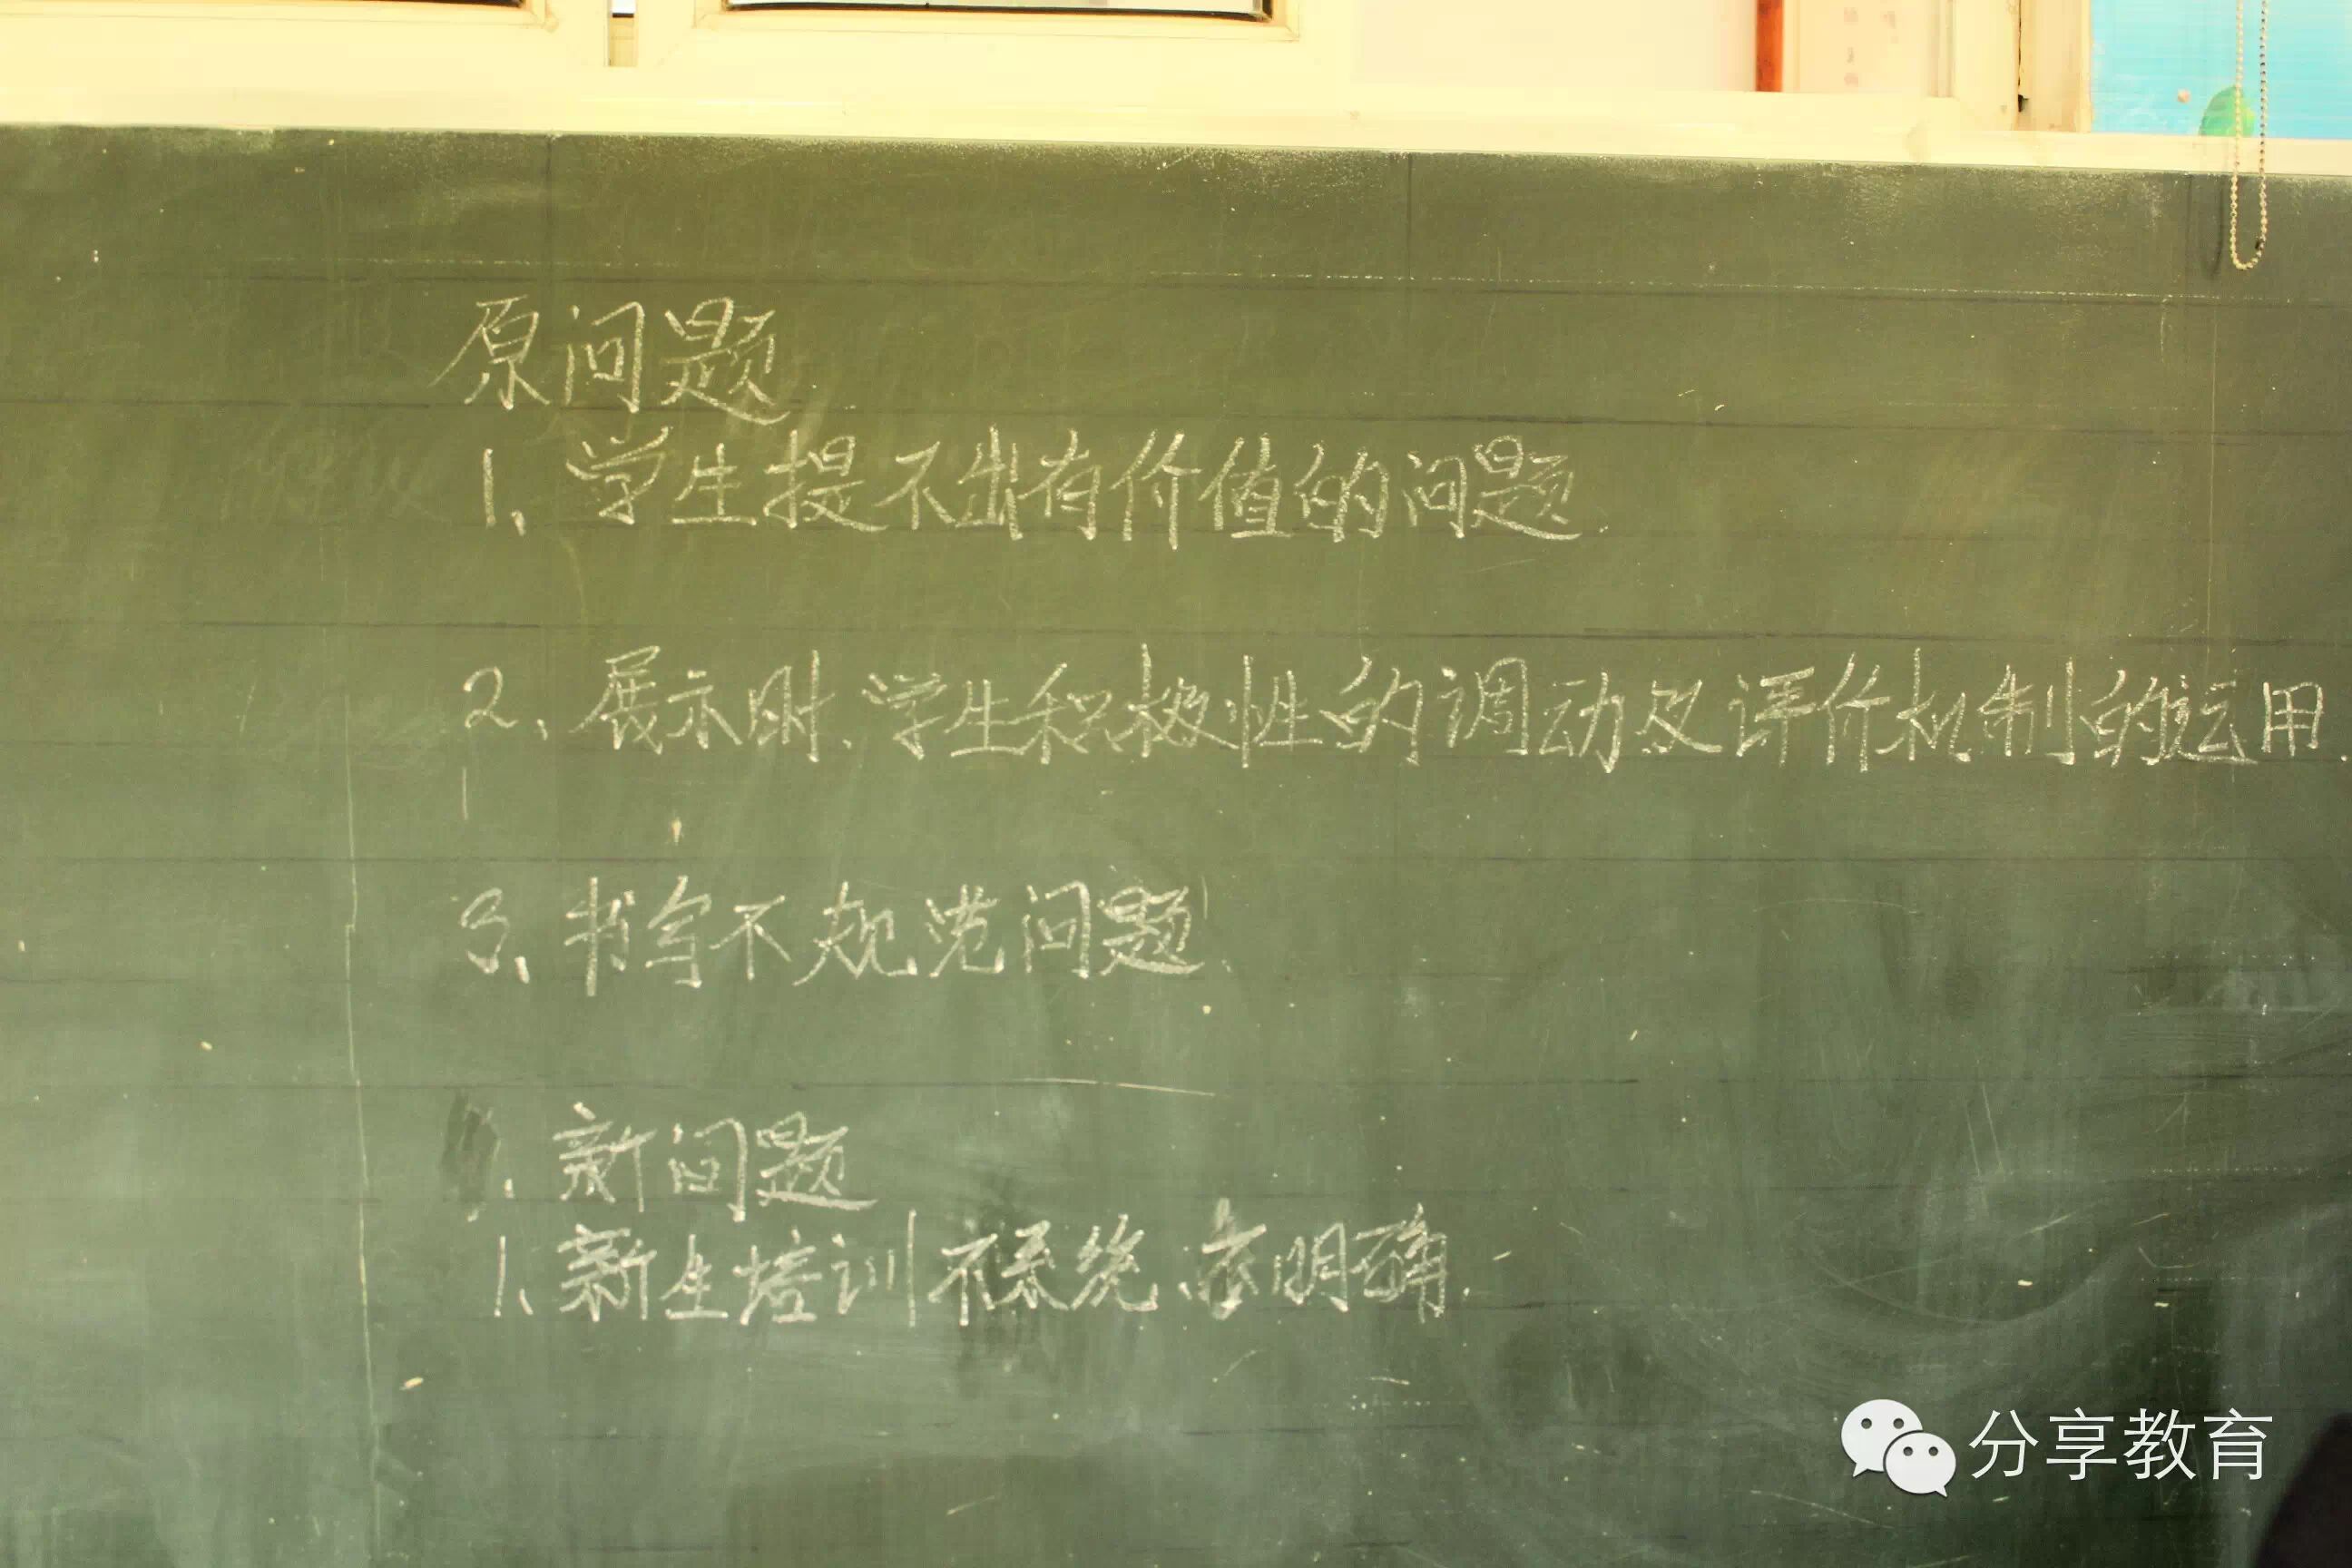 原问题
1、学生提不出有价值的问题.
2、展示时、学生积极性的调动及评价机制的运用.
3、书写不规范问题.
新问题
1、新生培训不系统、不明确.
分享教育